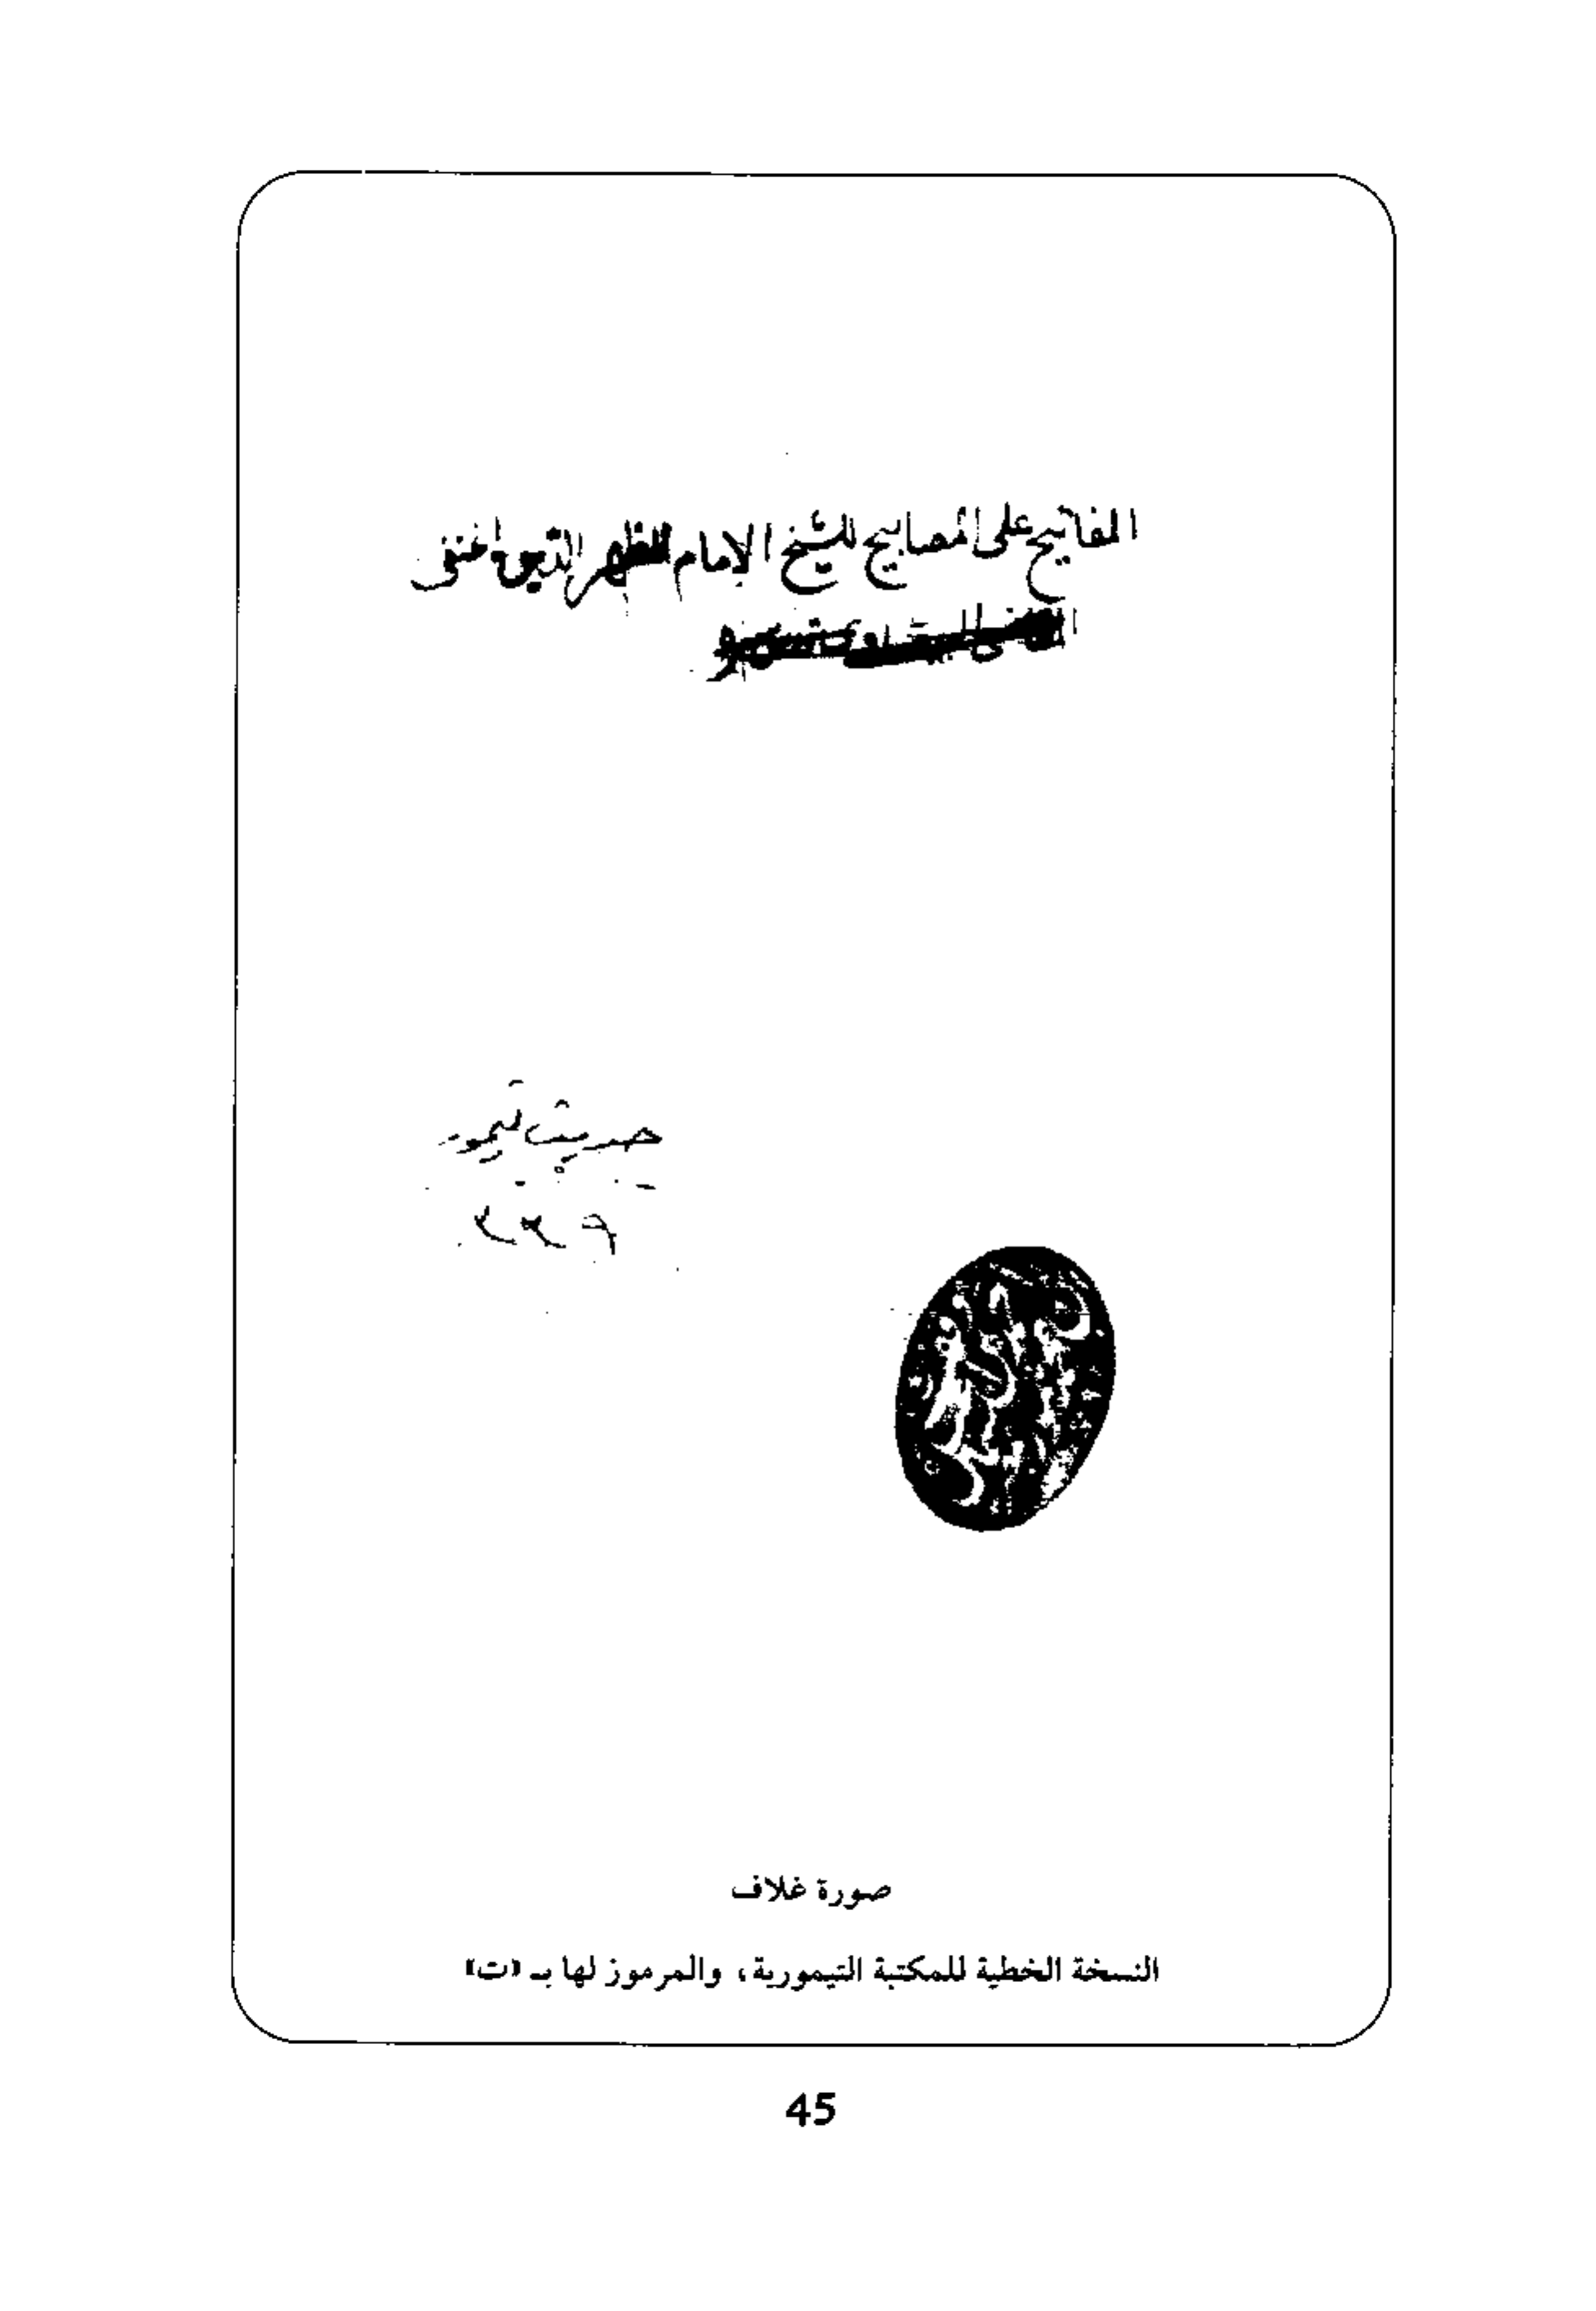 المفاتيح على المصابيح للشيخ الإمام المظهر الدين الحنفي
حديث تيمور
صورة غلاف
النسخة الخطية للمكتبة التيمورية، والمرموز لها بـ «ت»
45